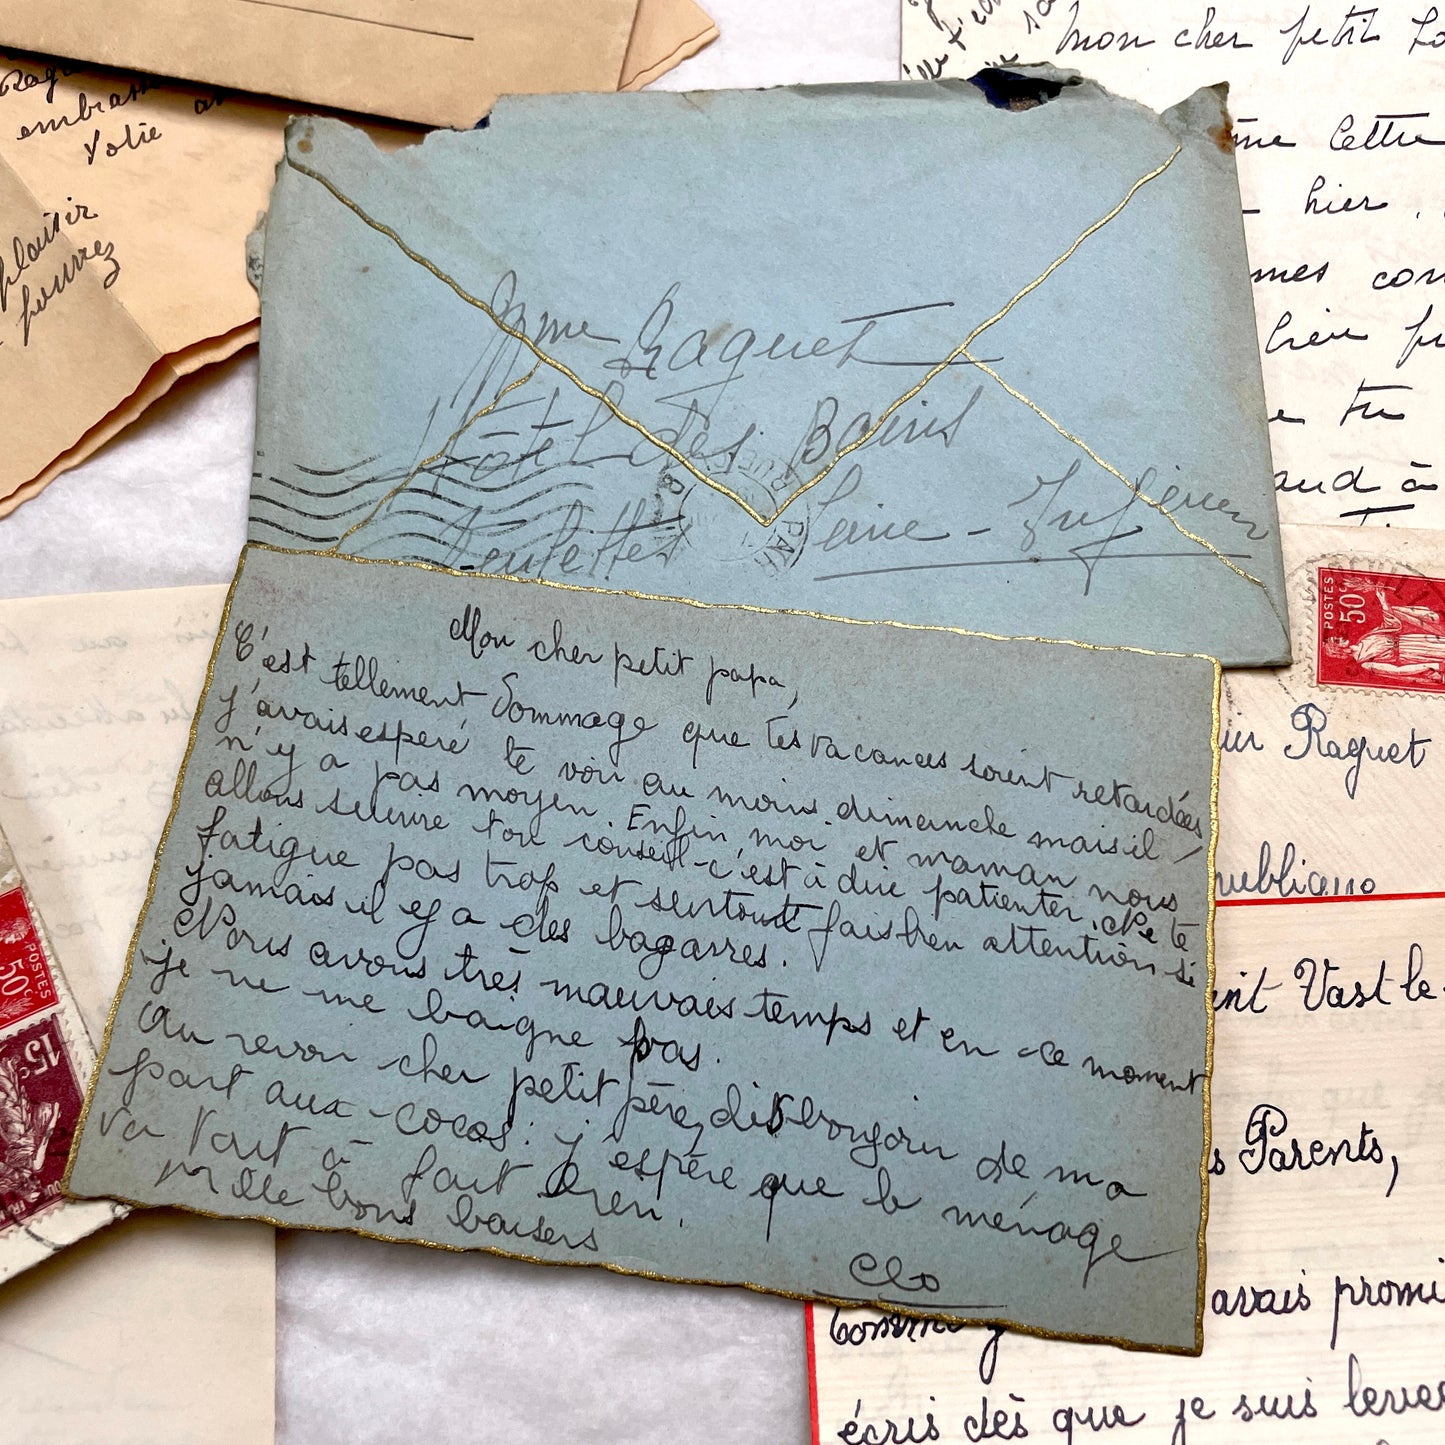 embrass
Votie
plaisir
pouvez
Mon cher petit
me lettre
hier.
mes con
tu
and à
Mme Raguet
Hôtel des Bains
Veulettes Seine-Inférieure
PARIS
Mon cher petit papa,
C'est tellement Dommage que tes vacances soient retardées
j'avais esperé te voir au moins dimanche mais il
n'y a pas moyen. Enfin, moi et maman nous
allons suivre ton conseil-c'est à dire patienter. Ne te
fatigue pas trop et surtout fais bien attention si
jamais il y a des bagarres.
Nous avons très mauvais temps et en ce moment
je ne me baigne pas.
Au revoir cher petit père, dis bonjour de ma
part aux cocos: j'espère que le ménage
va tout à fait bien.
Mille bons baisers
Clo
POSTES
50c
Raguet
publicano
POSTES
50c
15c
int Vast le
s Parents,
avais promi
Comme j
écris dès que je suis levée